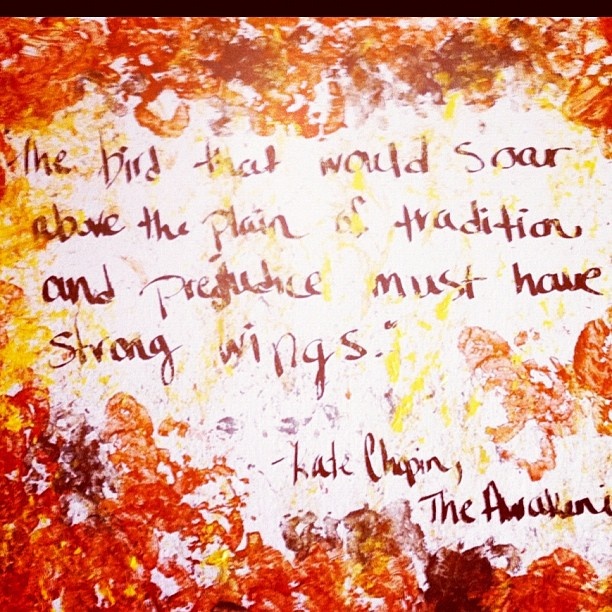 "The bird that would soar
above the plain of tradition
and prejudice must have
strong wings."
-Kate Chopin,
The Awakeni